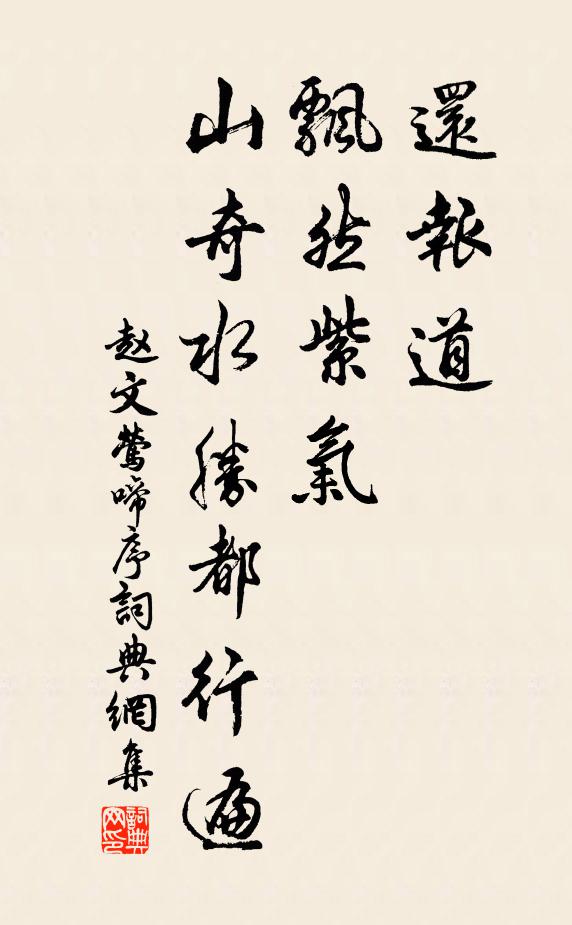 還報道
飄然紫氣
山奇水勝都行遍
赵文鶯啼序詞典網集
詞典
网印